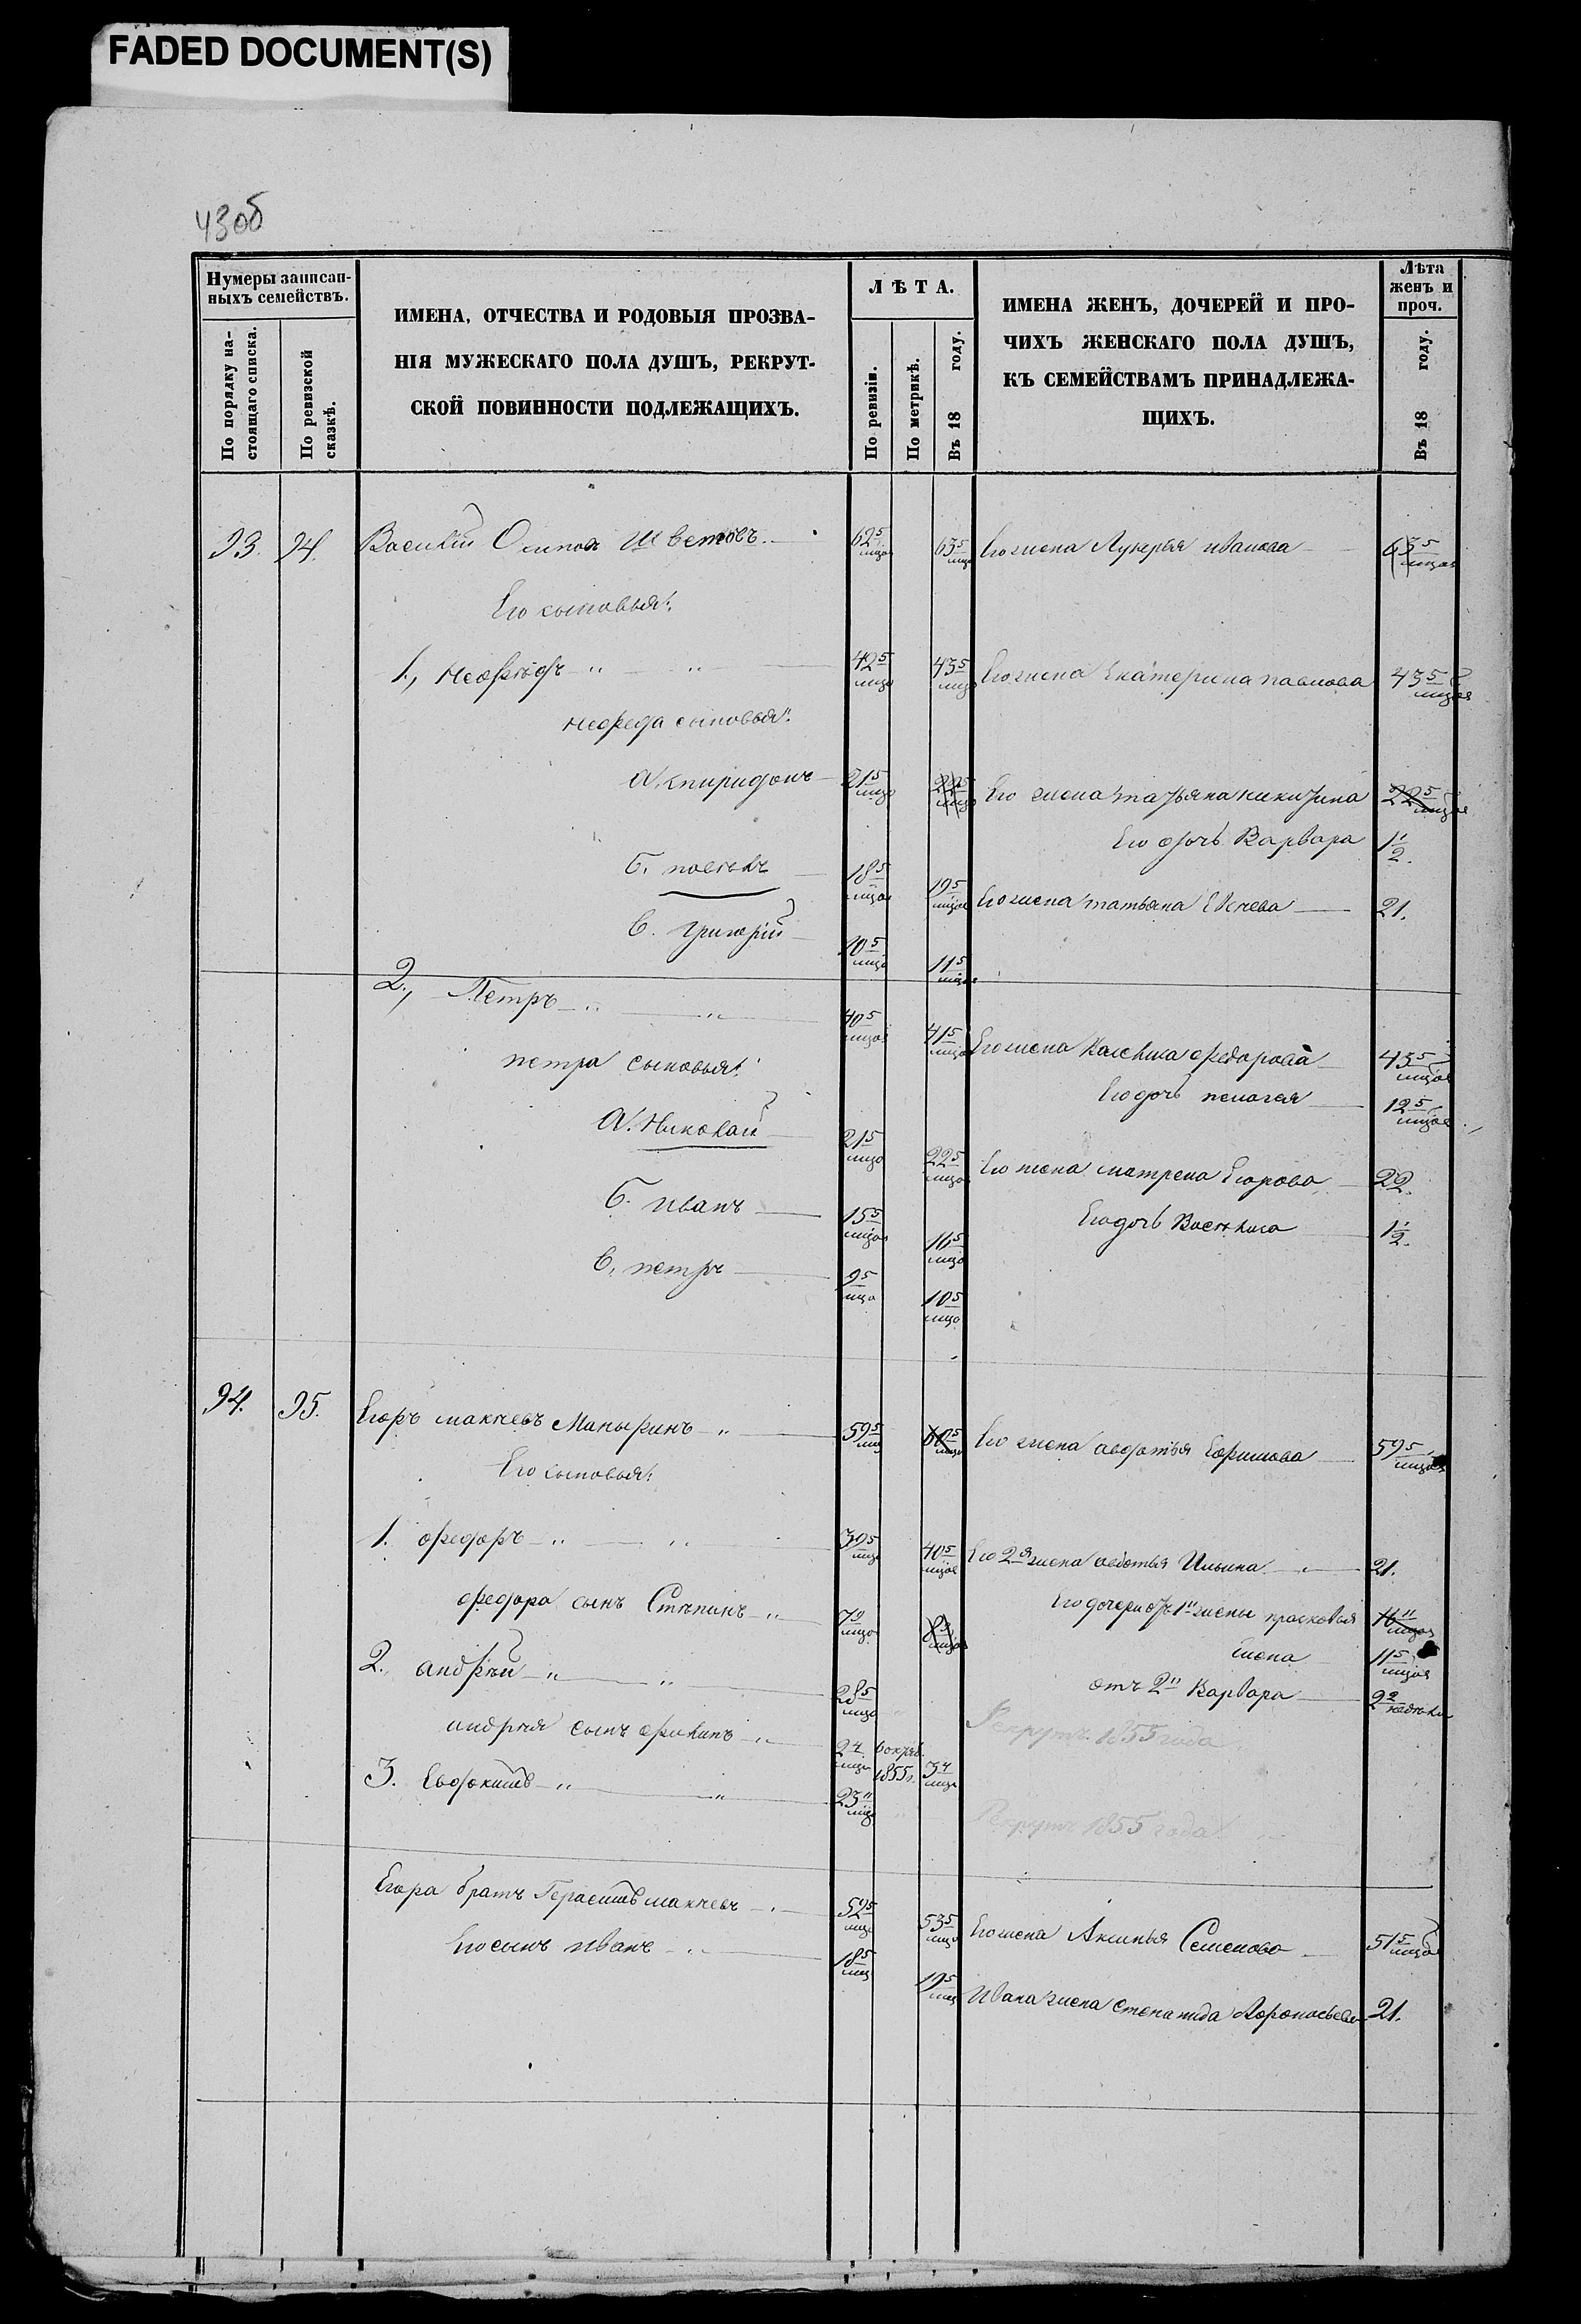 FADED DOCUMENT(S)
43об
Нумеры записан-
ныхъ семействъ.
По порядку на-
стоящаго списка.
По ревизской
сказкѣ.
ИМЕНА, ОТЧЕСТВА И РОДОВЫЯ ПРОЗВА-
НІЯ МУЖЕСКАГО ПОЛА ДУШЪ, РЕКРУТ-
СКОЙ ПОВИННОСТИ ПОДЛЕЖАЩИХЪ.
ЛѢТА.
По ревизіи.
По метрикѣ.
Въ 18 году.
ИМЕНА ЖЕНЪ, ДОЧЕРЕЙ И ПРО-
ЧИХЪ ЖЕНСКАГО ПОЛА ДУШЪ,
КЪ СЕМЕЙСТВАМЪ ПРИНАДЛЕЖА-
ЩИХЪ.
Лѣта
женъ и
проч.
Въ 18 году.
93. 94. Василій Осипов 62 5 63 5 Его жена Лукерья иванова 63 5
Его сыновья:
1., 42 5 43 5 Его жена Екатерина павлова 43 5
сыновья:
А. спиридонъ 21 5 22 5 Его жена татьяна никитина 22 5
Его дочь Варвара 1 1/2.
Б. 18 5 19 5 Его жена татьяна 21.
В. григорій 10 5 11 5
2., Петръ 40 5 41 5 Его жена федорова 43 5
петра сыновья:
Его дочь пелагея 12 5
А. Николай 21 5 22 5 Его жена матрена Егорова 22.
Б. иванъ 15 5 16 5 Его дочь Василиса 1 1/2.
В. петръ 9 5 10 5
94. 95. Егоръ макеевъ 59 5 60 5 Его жена авдотья Ефимова 59 5
Его сыновья:
1. федоръ 39 5 40 5 Его 2я жена авдотья Ильина 21.
федора сынъ Степанъ 7 9 8 9 Его дочери отъ 1й жены прасковья 16 11
Елена 11 5
2. андрей 28 5 отъ 2й Варвара 2 2 недели
Рекрутъ 1855 года
андрея сынъ 2 4 1855 3 4
3. Евдокимъ 23 11 Рекрутъ 1855 года
Егора братъ Герасимъ макеевъ 52 5 53 5 Его жена Аксинья Семенова 51 5
Его сынъ иванъ 18 5 19 5 Ивана жена степанида Афонасьева 21.